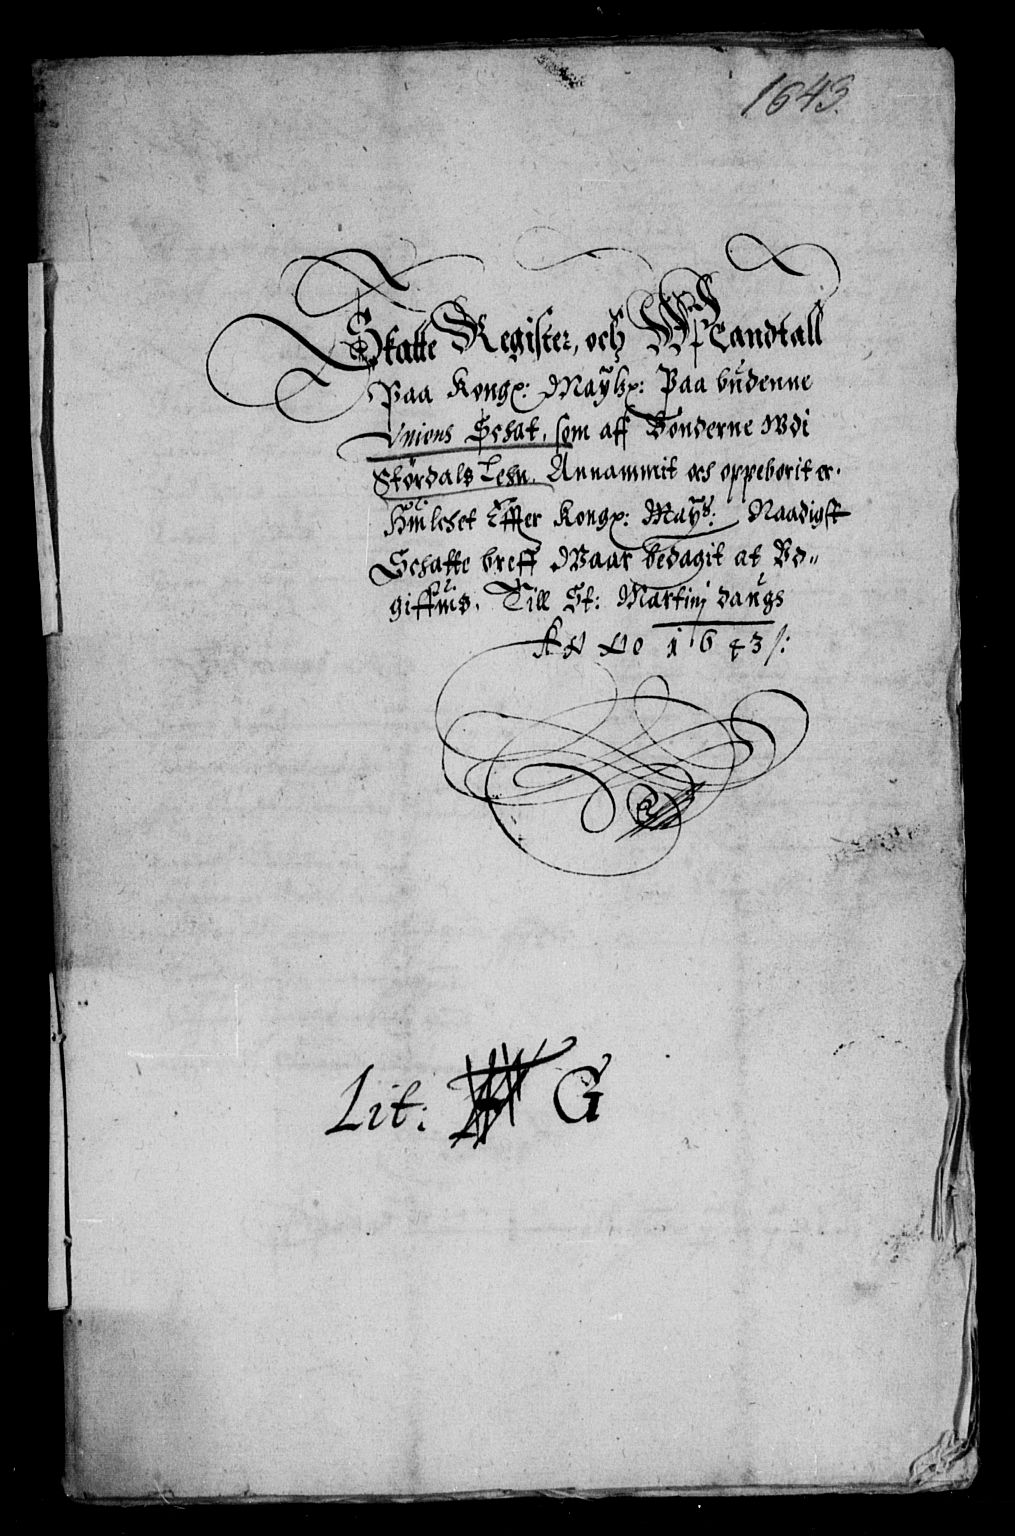 1643.
Skatte Register, och Mandtall
Paa Kongx: Maytzx: Paa budenne
Unions Schat, som aff Bønderne Wdi
Størdals Lehn, Annammit och oppeborit er.
Huilchet Effter Kongx: Mayts: Naadigst
Schatte breff Waar bedagit at Vd=
giffuis. Till St: Martinj daugs
ANNO 1643 /:
Lit: G